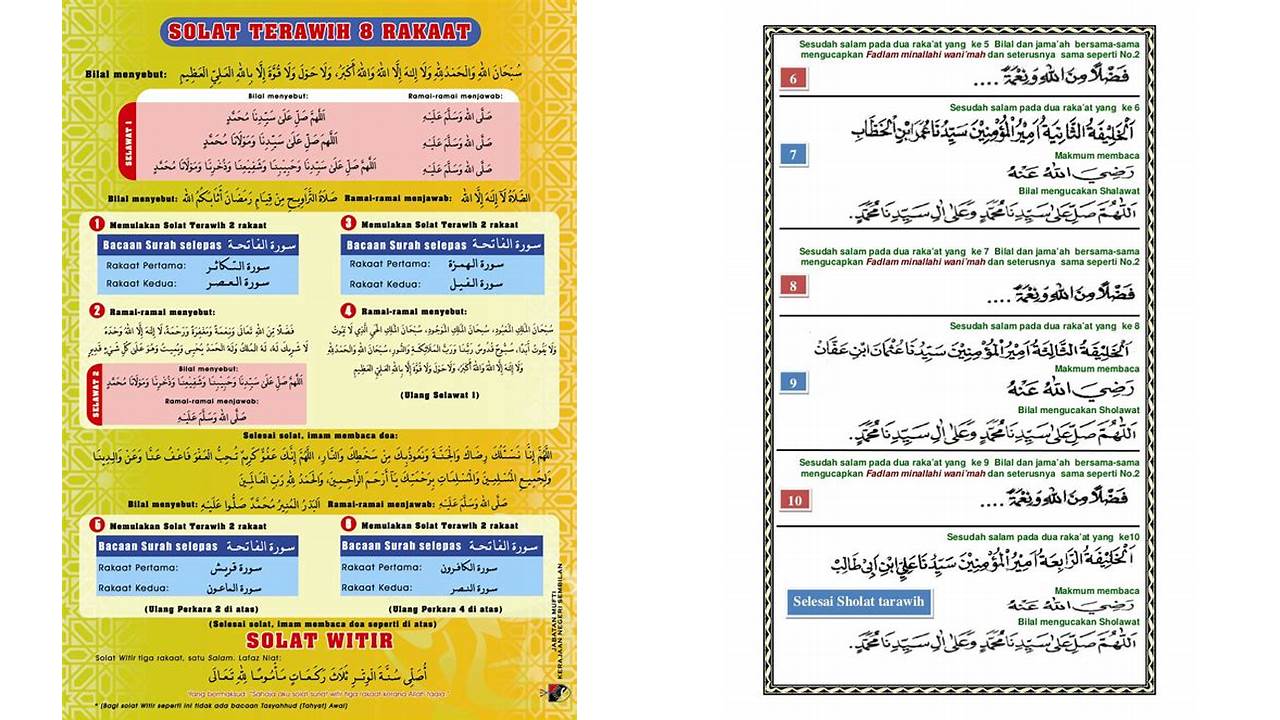 SOLAT TERAWIH 8 RAKAAT
Bilal menyebut: سُبْحَانَ اللهِ وَالْحَمْدُ لِلّٰهِ وَلَا إِلٰهَ إِلَّا اللهُ وَاللهُ أَكْبَرُ، وَلَا حَوْلَ وَلَا قُوَّةَ إِلَّا بِاللهِ الْعَلِيِّ الْعَظِيمِ
Bilal menyebut: Ramai-ramai menjawab:
SELAWAT 1
اَللّٰهُمَّ صَلِّ عَلَىٰ سَيِّدِنَا مُحَمَّدٍ صَلَّى اللهُ وَسَلَّمَ عَلَيْهِ
اَللّٰهُمَّ صَلِّ عَلَىٰ سَيِّدِنَا وَمَوْلَانَا مُحَمَّدٍ صَلَّى اللهُ وَسَلَّمَ عَلَيْهِ
اَللّٰهُمَّ صَلِّ عَلَىٰ سَيِّدِنَا وَحَبِيبِنَا وَشَفِيعِنَا وَذُخْرِنَا وَمَوْلَانَا مُحَمَّدٍ صَلَّى اللهُ وَسَلَّمَ عَلَيْهِ
Bilal menyebut: صَلَاةُ التَّرَاوِيحِ مِنْ قِيَامِ رَمَضَانَ أَثَابَكُمُ اللهُ Ramai-ramai menjawab: الصَّلَاةُ لَآ إِلٰهَ إِلَّا اللهُ
1 Memulakan Solat Terawih 2 rakaat
Bacaan Surah selepas سورة الفاتحة
Rakaat Pertama: سورة التكاثر
Rakaat Kedua: سورة العصر
3 Memulakan Solat Terawih 2 rakaat
Bacaan Surah selepas سورة الفاتحة
Rakaat Pertama: سورة الهمزة
Rakaat Kedua: سورة الفيل
2 Ramai-ramai menyebut:
فَضْلًا مِنَ اللهِ تَعَالَى وَنِعْمَةً وَمَغْفِرَةً وَرَحْمَةً، لَا إِلٰهَ إِلَّا اللهُ وَحْدَهُ
لَا شَرِيكَ لَهُ، لَهُ الْمُلْكُ وَلَهُ الْحَمْدُ يُحْيِي وَيُمِيتُ وَهُوَ عَلَىٰ كُلِّ شَيْءٍ قَدِيرٌ
SELAWAT 2
Bilal menyebut:
اَللّٰهُمَّ صَلِّ عَلَىٰ سَيِّدِنَا وَحَبِيبِنَا وَشَفِيعِنَا وَذُخْرِنَا وَمَوْلَانَا مُحَمَّدٍ
Ramai-ramai menjawab:
صَلَّى اللهُ وَسَلَّمَ عَلَيْهِ
4 Ramai-ramai menyebut:
سُبْحَانَ الْمَلِكِ الْمَعْبُودِ، سُبْحَانَ الْمَلِكِ الْمَوْجُودِ، سُبْحَانَ الْمَلِكِ الْحَيِّ الَّذِي لَا يَمُوتُ
وَلَا يَفُوتُ أَبَدًا، سُبُّوحٌ قُدُّوسٌ رَبُّنَا وَرَبُّ الْمَلَائِكَةِ وَالرُّوحِ، سُبْحَانَ اللهِ وَالْحَمْدُ لِلّٰهِ
وَلَا إِلٰهَ إِلَّا اللهُ وَاللهُ أَكْبَرُ، وَلَا حَوْلَ وَلَا قُوَّةَ إِلَّا بِاللهِ الْعَلِيِّ الْعَظِيمِ
(Ulang Selawat 1)
Selesai solat, imam membaca doa:
اَللّٰهُمَّ إِنَّا نَسْئَلُكَ رِضَاكَ وَالْجَنَّةَ وَنَعُوذُبِكَ مِنْ سَخَطِكَ وَالنَّارِ، اَللّٰهُمَّ إِنَّكَ عَفُوٌّ كَرِيمٌ تُحِبُّ الْعَفْوَ فَاعْفُ عَنَّا وَعَنْ وَالِدِينَا
وَلِجَمِيعِ الْمُسْلِمِينَ وَالْمُسْلِمَاتِ بِرَحْمَتِكَ يَآ أَرْحَمَ الرَّاحِمِينَ، وَالْحَمْدُ لِلّٰهِ رَبِّ الْعَالَمِينَ
Bilal menyebut: اَلْبَدْرُ الْمُنِيرُ مُحَمَّدٌ صَلُّوا عَلَيْهِ Ramai-ramai menjawab: صَلَّى اللهُ وَسَلَّمَ عَلَيْهِ
Memulakan Solat Terawih 2 rakaat
Bacaan Surah selepas سورة الفاتحة
Rakaat Pertama: سورة قريش
Rakaat Kedua: سورة الماعون
(Ulang Perkara 2 di atas)
Memulakan Solat Terawih 2 rakaat
Bacaan Surah selepas سورة الفاتحة
Rakaat Pertama: سورة الكافرون
Rakaat Kedua: سورة النصر
(Ulang Perkara 4 di atas)
(Selesai solat, imam membaca doa seperti di atas)
SOLAT WITIR
Solat Witir tiga rakaat, satu Salam. Lafaz Niat:
أُصَلِّى سُنَّةَ الْوِتْرِ ثَلَاثَ رَكَعَاتٍ مَأْمُومًا لِلّٰهِ تَعَالَى
Yang bermaksud: "Sahaja aku solat sunat witir tiga rakaat kerana Allah taala."
* (Bagi solat Witir seperti ini tidak ada bacaan Tasyahhud (Tahyat) Awal)
JABATAN MUFTI
KERAJAAN NEGERI SEMBILAN
Sesudah salam pada dua raka'at yang ke 5 Bilal dan jama'ah bersama-sama
mengucapkan Fadlam minallahi wani'mah dan seterusnya sama seperti No.2
6 فَضْلًا مِنَ اللهِ وَنِعْمَةً ....
Sesudah salam pada dua raka'at yang ke 6
7 اَلْخَلِيْفَةُ الثَّانِيَةُ اَمِيْرُ الْمُؤْمِنِيْنَ سَيِّدُنَا عُمَرُ ابْنُ الْخَطَّابِ
Makmum membaca
رَضِيَ اللهُ عَنْهُ
Bilal mengucakan Shalawat
اَللّٰهُمَّ صَلِّ عَلٰى سَيِّدِنَا مُحَمَّدٍ وَعَلٰى اٰلِ سَيِّدِنَا مُحَمَّدٍ.
Sesudah salam pada dua raka'at yang ke 7 Bilal dan jama'ah bersama-sama
mengucapkan Fadlam minallahi wani'mah dan seterusnya sama seperti No.2
8 فَضْلًا مِنَ اللهِ وَنِعْمَةً ....
Sesudah salam pada dua raka'at yang ke 8
9 اَلْخَلِيْفَةُ الثَّالِثَةُ اَمِيْرُ الْمُؤْمِنِيْنَ سَيِّدُنَا عُثْمَانَ ابْنِ عَفَّانَ
Makmum membaca
رَضِيَ اللهُ عَنْهُ
Bilal mengucakan Sholawat
اَللّٰهُمَّ صَلِّ عَلٰى سَيِّدِنَا مُحَمَّدٍ وَعَلٰى اٰلِ سَيِّدِنَا مُحَمَّدٍ.
Sesudah salam pada dua raka'at yang ke 9 Bilal dan jama'ah bersama-sama
mengucapkan Fadlam minallahi wani'mah dan seterusnya sama seperti No.2
10 فَضْلًا مِنَ اللهِ وَنِعْمَةً ....
Sesudah salam pada dua raka'at yang ke10
اَلْخَلِيْفَةُ الرَّابِعَةُ اَمِيْرُ الْمُؤْمِنِيْنَ سَيِّدُنَا عَلِيُّ ابْنِ اَبِيْ طَالِبْ
Selesai Sholat tarawih
Makmum membaca
رَضِيَ اللهُ عَنْهُ
Bilal mengucakan Sholawat
اَللّٰهُمَّ صَلِّ عَلٰى سَيِّدِنَا مُحَمَّدٍ وَعَلٰى اٰلِ سَيِّدِنَا مُحَمَّدٍ.